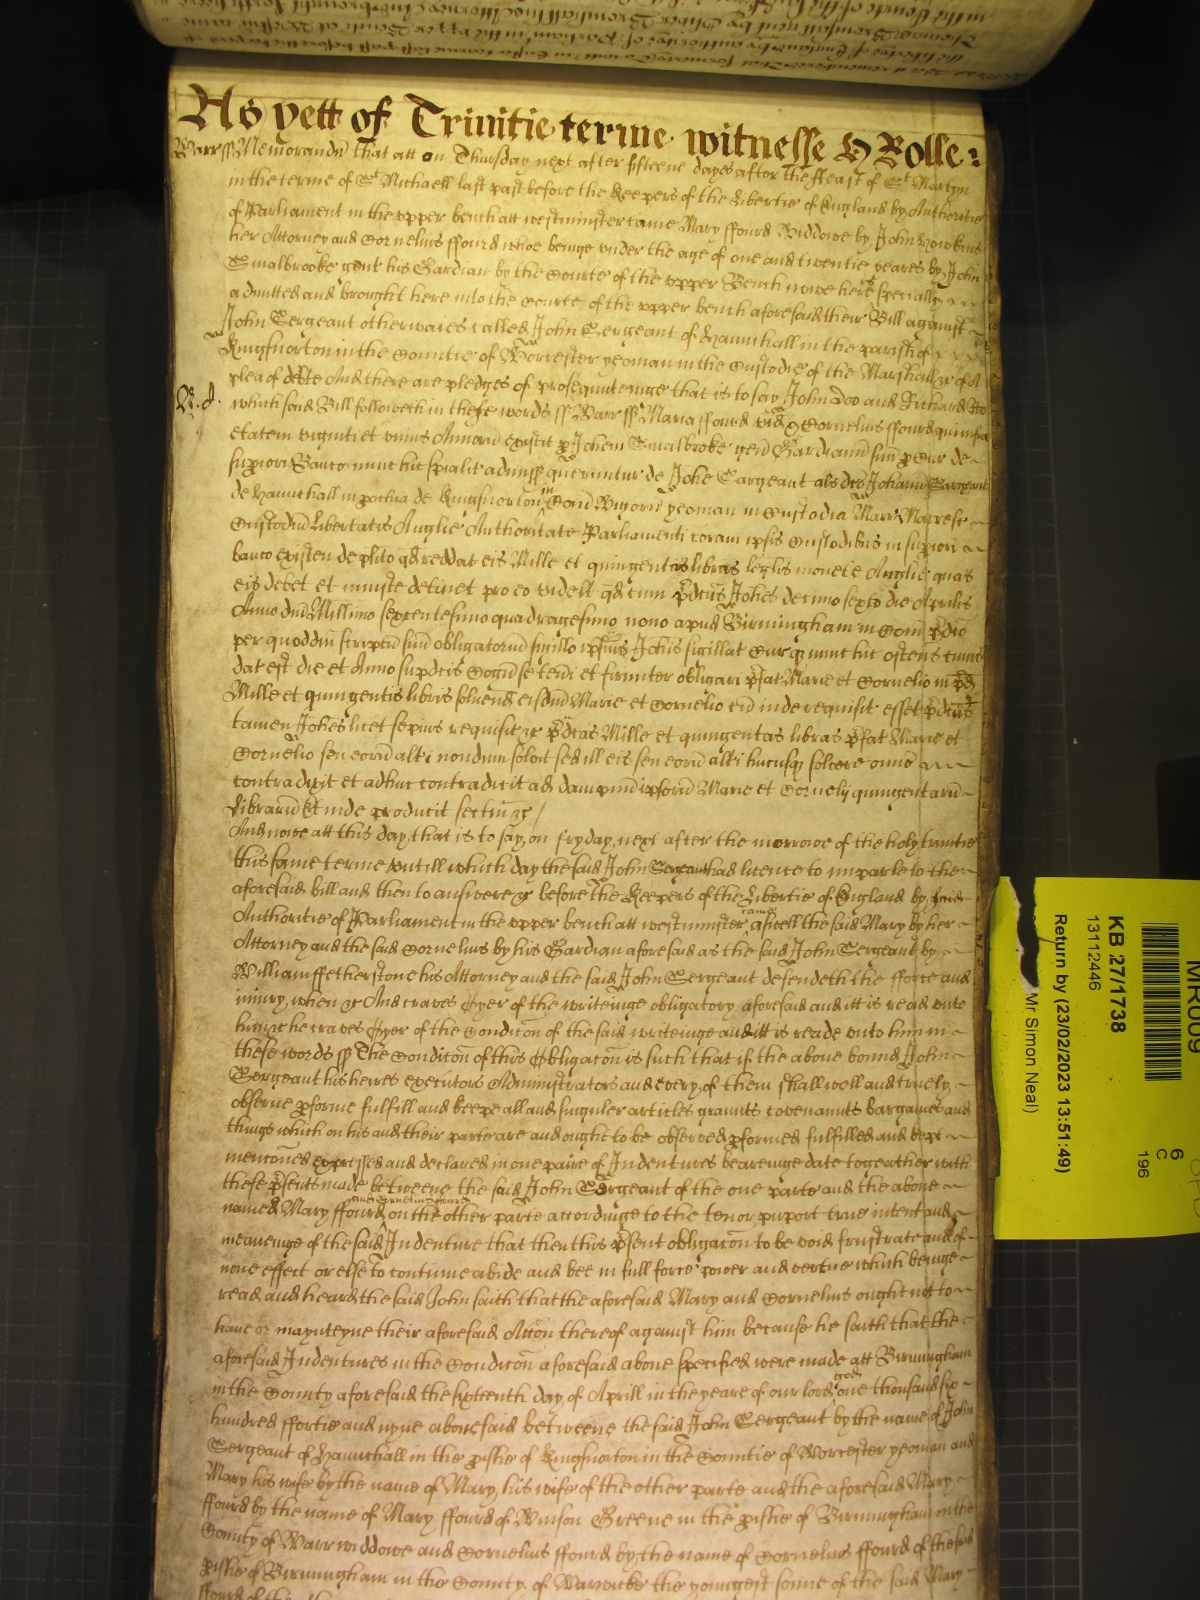 As yett of Trinitie terme witnesse H Rolle:
Warr ss Memorandu that att on Thursday next after fifteene dayes after the ffeast of St Martyn
in the terme of St Michaell last past before the Keepers of the Libertie of England by Authoritie
of Parliament in the upper bench att westminster came Mary ffourd Widdowe by John Hawkins
her Attorney and Cornelius ffourd whoe beinge under the age of one and twentie yeares by John
Smalbrooke gent his Gardian by the Courte of the upper Bench nowe here specially
admitted and brought here into the Courte of the upper bench aforesaid their Bill against
John Sergeant otherwaies called John Sergeant of Hannchall in the parish of
Kingsnorton in the Countie of Worcester yeoman in the Custodie of the Marshall &c of a
plea of debte And there are pledges of prosequuteinge that is to say John Doo and Richard Roo
which said Bill followeth in these words ss Warr ss Maria ffourd vid & Cornelius ffourd qui infra
etatem viginti et unius Annoru existit p Johem Smalbroke gen Gardianu suu p Cur de
supiori Banco nunc hic spialit admiss queruntur de Johe Sargeant als dco Johanne Sargeant
de Hannchall in pochia de Kingsnorton in Com Wigorn yeoman in Custodia Marr Marresc
Custodu Libertatis Anglie Authoritate Parliamenti coram ipsis Custodibus in supiori
banco existen de plito qd reddat eis Mille et quingentas libras leglis monete Anglie quas
eis debet et iniuste detinet pro eo videlt qd cum pdcus Johes decimo sexto die Aprilis
Anno dni Millimo sexcentesimo quadragesimo nono apud Birmingham in Com pdco
per quoddm scriptu suu obligatoriu sigillo ipsius Johis sigillat Curq nunc hic ostens cuius
dat est die et Anno supdcis Cogn se teneri et firmiter obligari pfat Marie et Cornelio in pd
Mille et quingentis libris solvend eisdm Marie et Cornelio cu inde requisit esset pdcus
tamen Johes licet sepius requisit &c pdcas Mille et quingentas libras pfat Marie et
Cornelio seu eoru alti nondum solvit sed ill eis seu eoru alti hucusq solvere omno
contradixit et adhuc contradicit ad dampnu ipsoru Marie et Cornelij quingentaru
Libraru Et inde producit sectm &c /
And nowe att this day that is to say on fryday next after the morrowe of the holy trinitie
this same terme untill which day the said John Sergeant had licence to imparle to the
aforesaid bill and then to answere &c before the Keepers of the Libertie of England by
Authoritie of Parliament in the upper bench att westminster came aswell the said Mary by her
Attorney and the said Cornelius by his Gardian aforesaid as the said John Sergeant by
William ffetherstone his Attorney and the said John Sergeant defendeth the fforce and
iniury when &c And craves Oyer of the writeinge obligatory aforesaid and itt is read unto
him &c he craves Oyer of the Condicon of the said writeinge and itt is reade unto him in
these words ss The Condicon of this Obligacon is such that if the above bound John
Sergeant his heires executors Administrators and every of them shall well and truely
observe pforme fulfill and keepe all and singuler articles graunts covenannts bargaines and
things which on his and their parte are and ought to be observed pformed fulfilled and kept
menconed expressed and declared in one paire of Indentures beareinge date togeather with
these psents made betweene the said John Sergeant of the one parte and the above
named Mary ffourd and Cornelius ffourd on the other parte accordinge to the tenor purport true intent and
meaneinge of the said Indenture that then this psent obligacon to be void frustrate and of
none effect or else to continue abide and bee in full force power and vertue which beinge
read and heard the said John saith that the aforesaid Mary and Cornelius ought not to
have or maynteyne their aforesaid Accon thereof against him because he saith that the
aforesaid Indentures in the Condicon aforesaid above specified were made att Birmingham
in the County aforesaid the sixteenth day of Aprill in the yeare of our lord god one thousand six
hundred ffortie and nyne abovesaid betweene the said John Sergeant by the name of John
Sergeant of Hannchall in the pishe of Kingsnorton in the Countie of Worcester yeoman and
Mary his wife by the name of Mary his wife of the other parte and the aforesaid Mary
ffourd by the name of Mary ffourd of Winson Greene in the pishe of Birmingham in the
County of Warr widdowe and Cornelius ffourd by the name of Cornelius ffourd of the said
pishe of Birmingham in the County of Warwicke the youngest sonne of the said Mary
KB 27/1738
13112446
Return by (23/02/2023 13:51:49)
Mr Simon Neal)
6
C
196